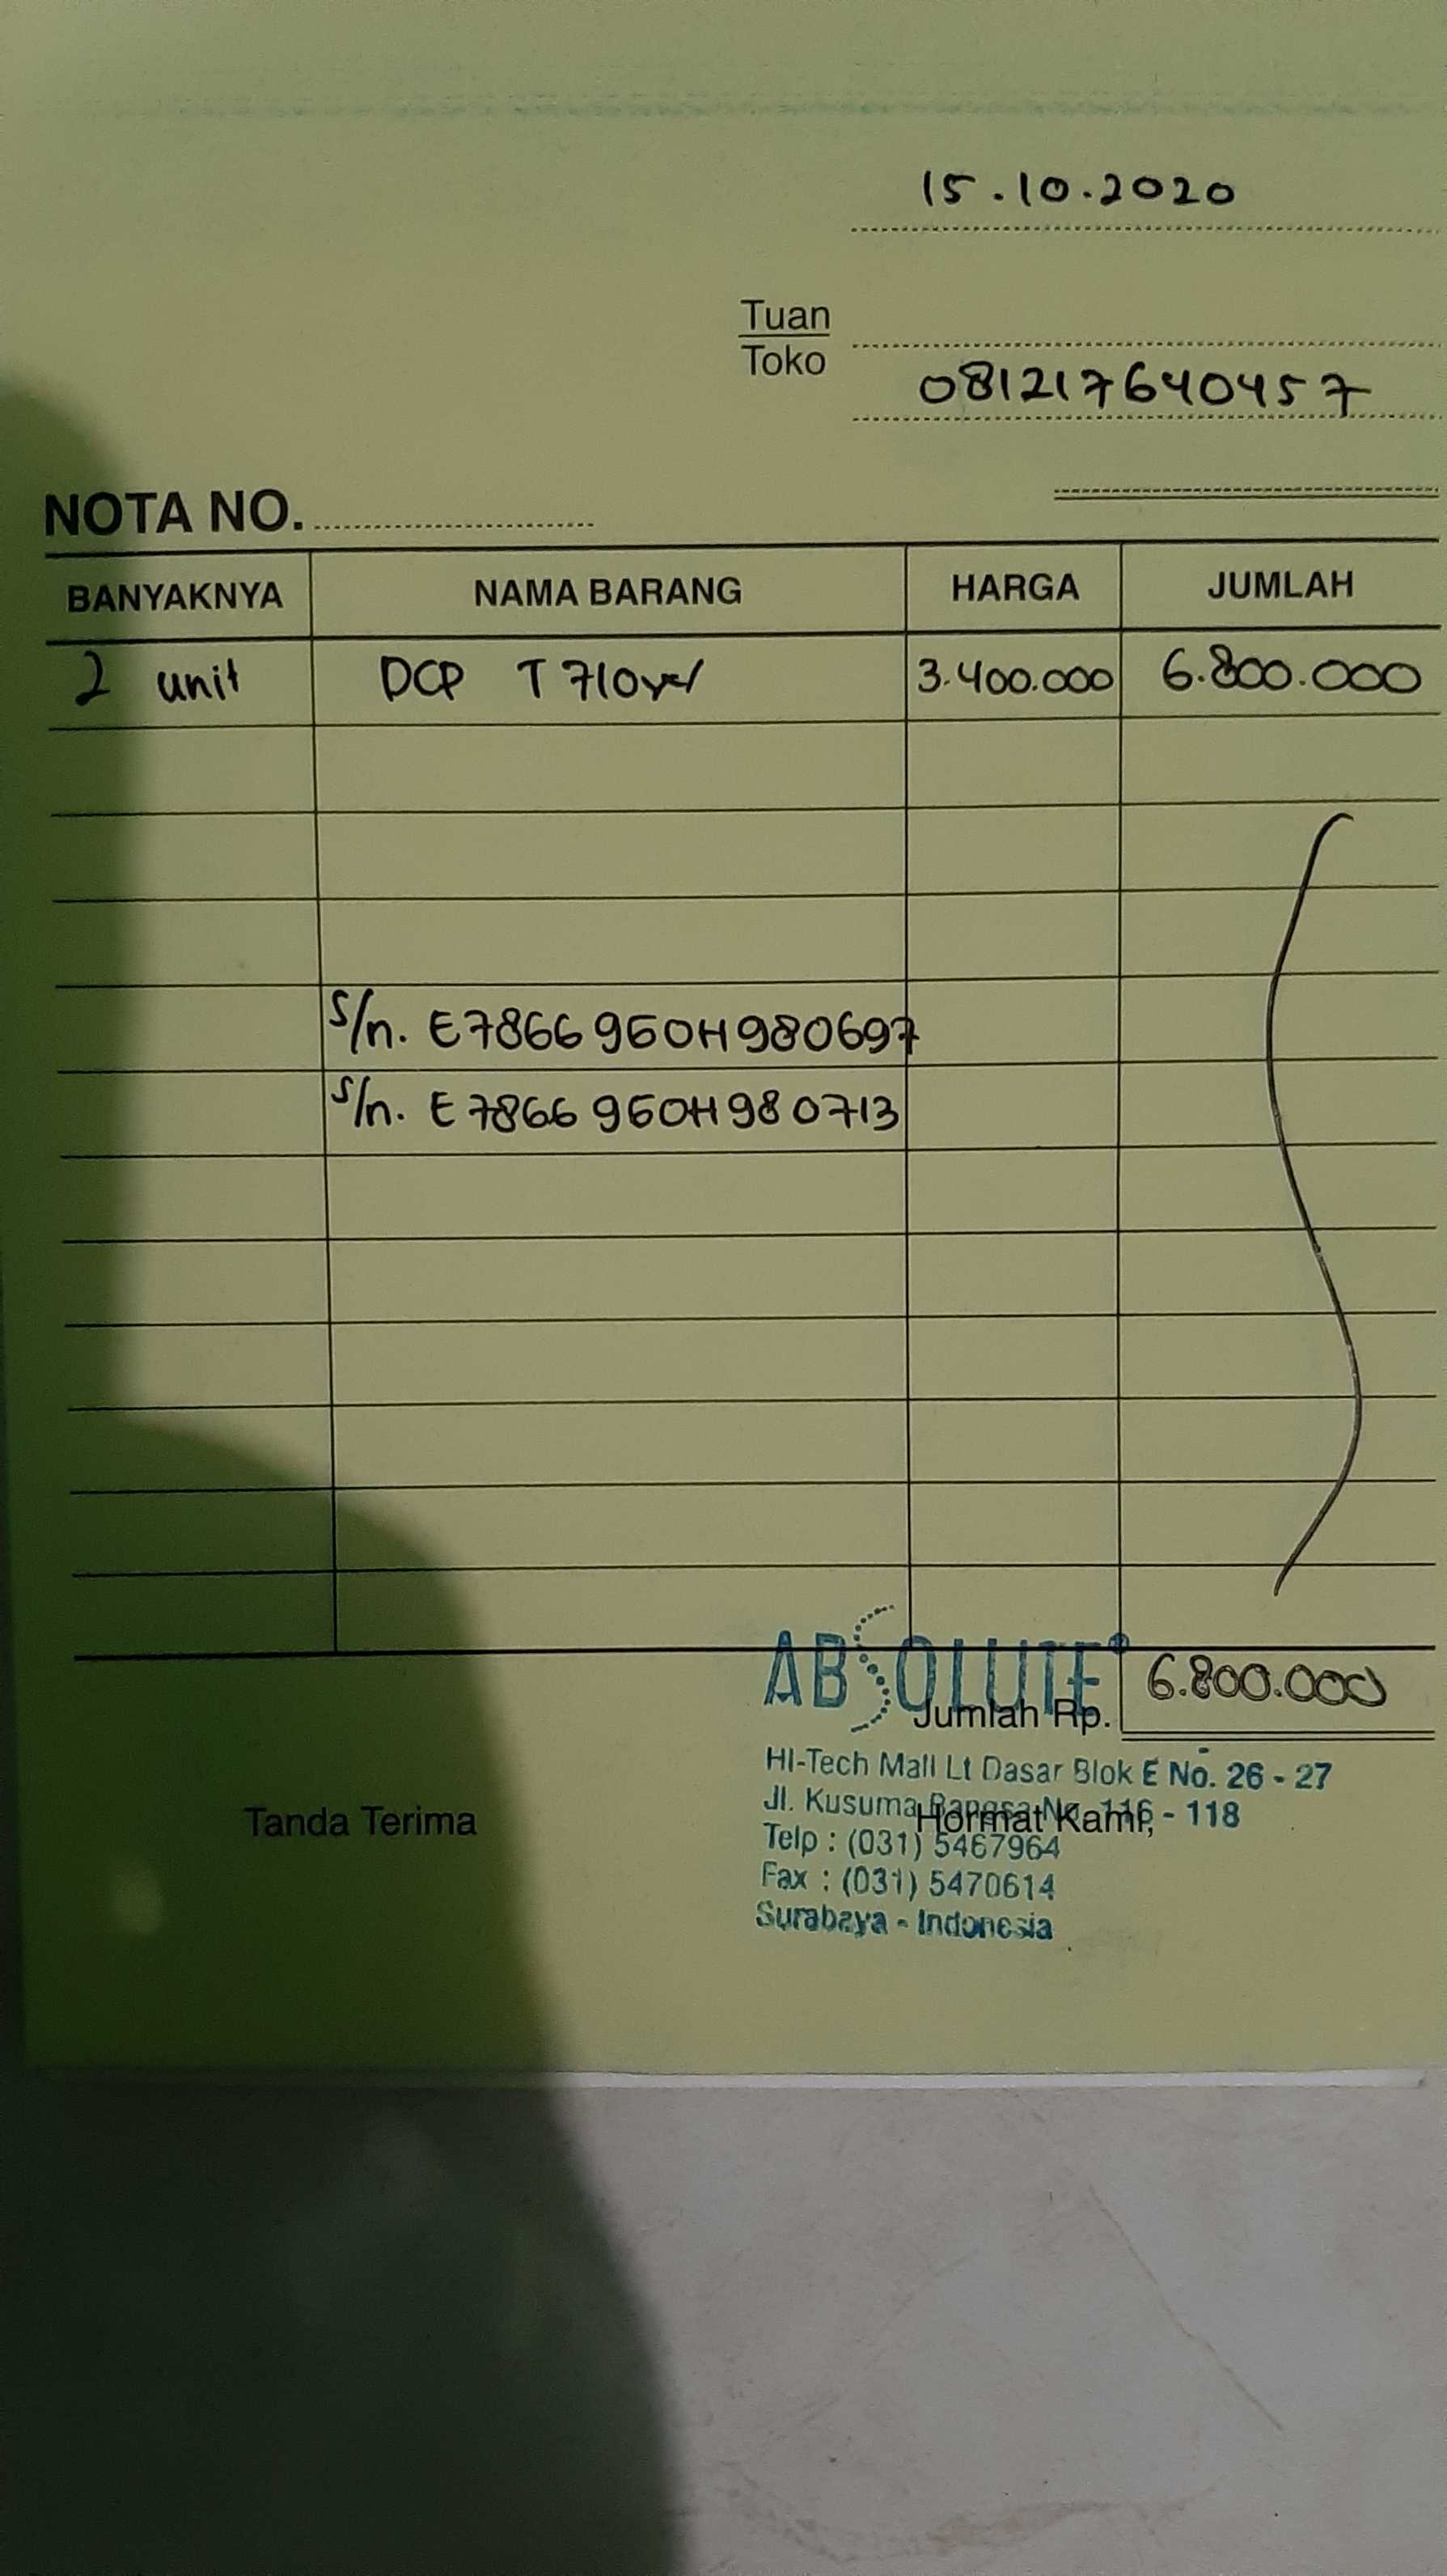 15.10.2020
Tuan
Toko
081217640457
NOTA NO.
BANYAKNYA NAMA BARANG HARGA JUMLAH
2 unit DCP T710 3.400.000 6.800.000
S/n. E7866960H980697
S/n. E7866960H980713
ABSOLUTE
Jumlah Rp. 6.800.000
HI-Tech Mall Lt Dasar Blok E No. 26 - 27
Jl. Kusuma Bangsa No. 116 - 118
Tanda Terima Hormat Kami,
Telp : (031) 5467964
Fax : (031) 5470614
Surabaya - Indonesia